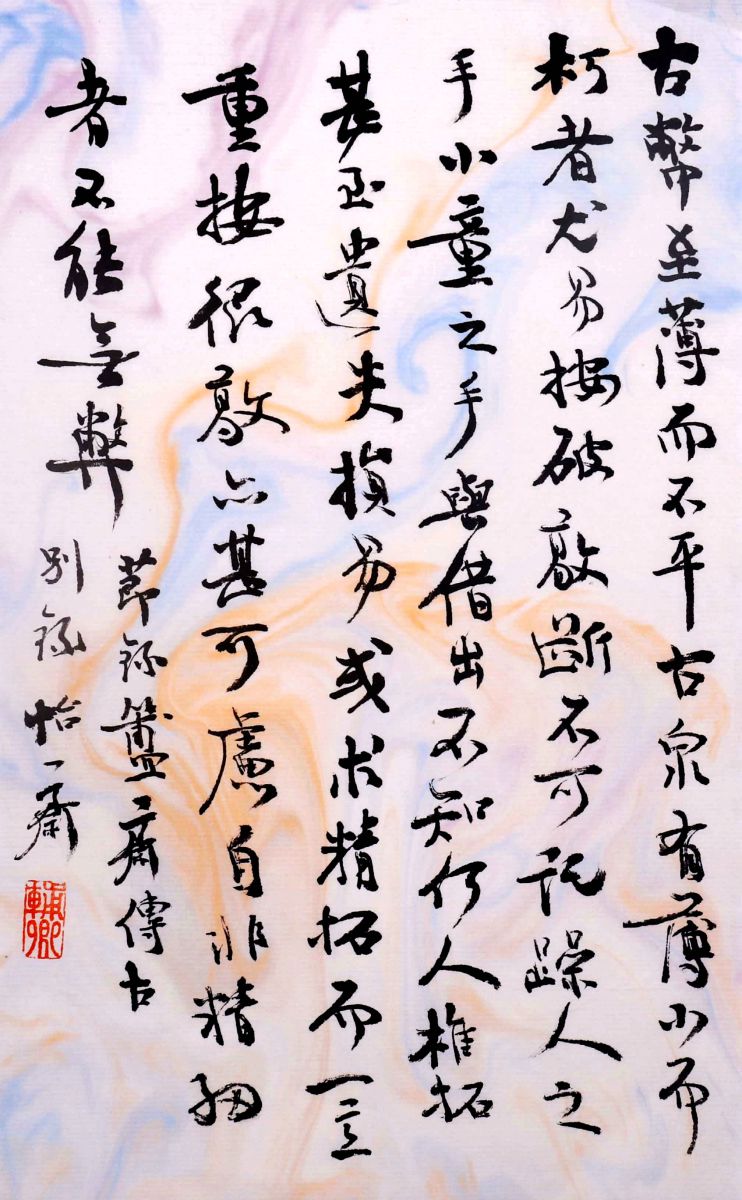 古幣至薄而不平古泉有薄小而
朽者尤易按破敲斷不可託躁人之
手小童之手與借出不知何人椎拓
甚至遺失損易或求精拓而一意
重按狠敲亦甚可慮自非精細
者不能無弊
節錄簠齋傳古
別錄 怡齋
輔卿